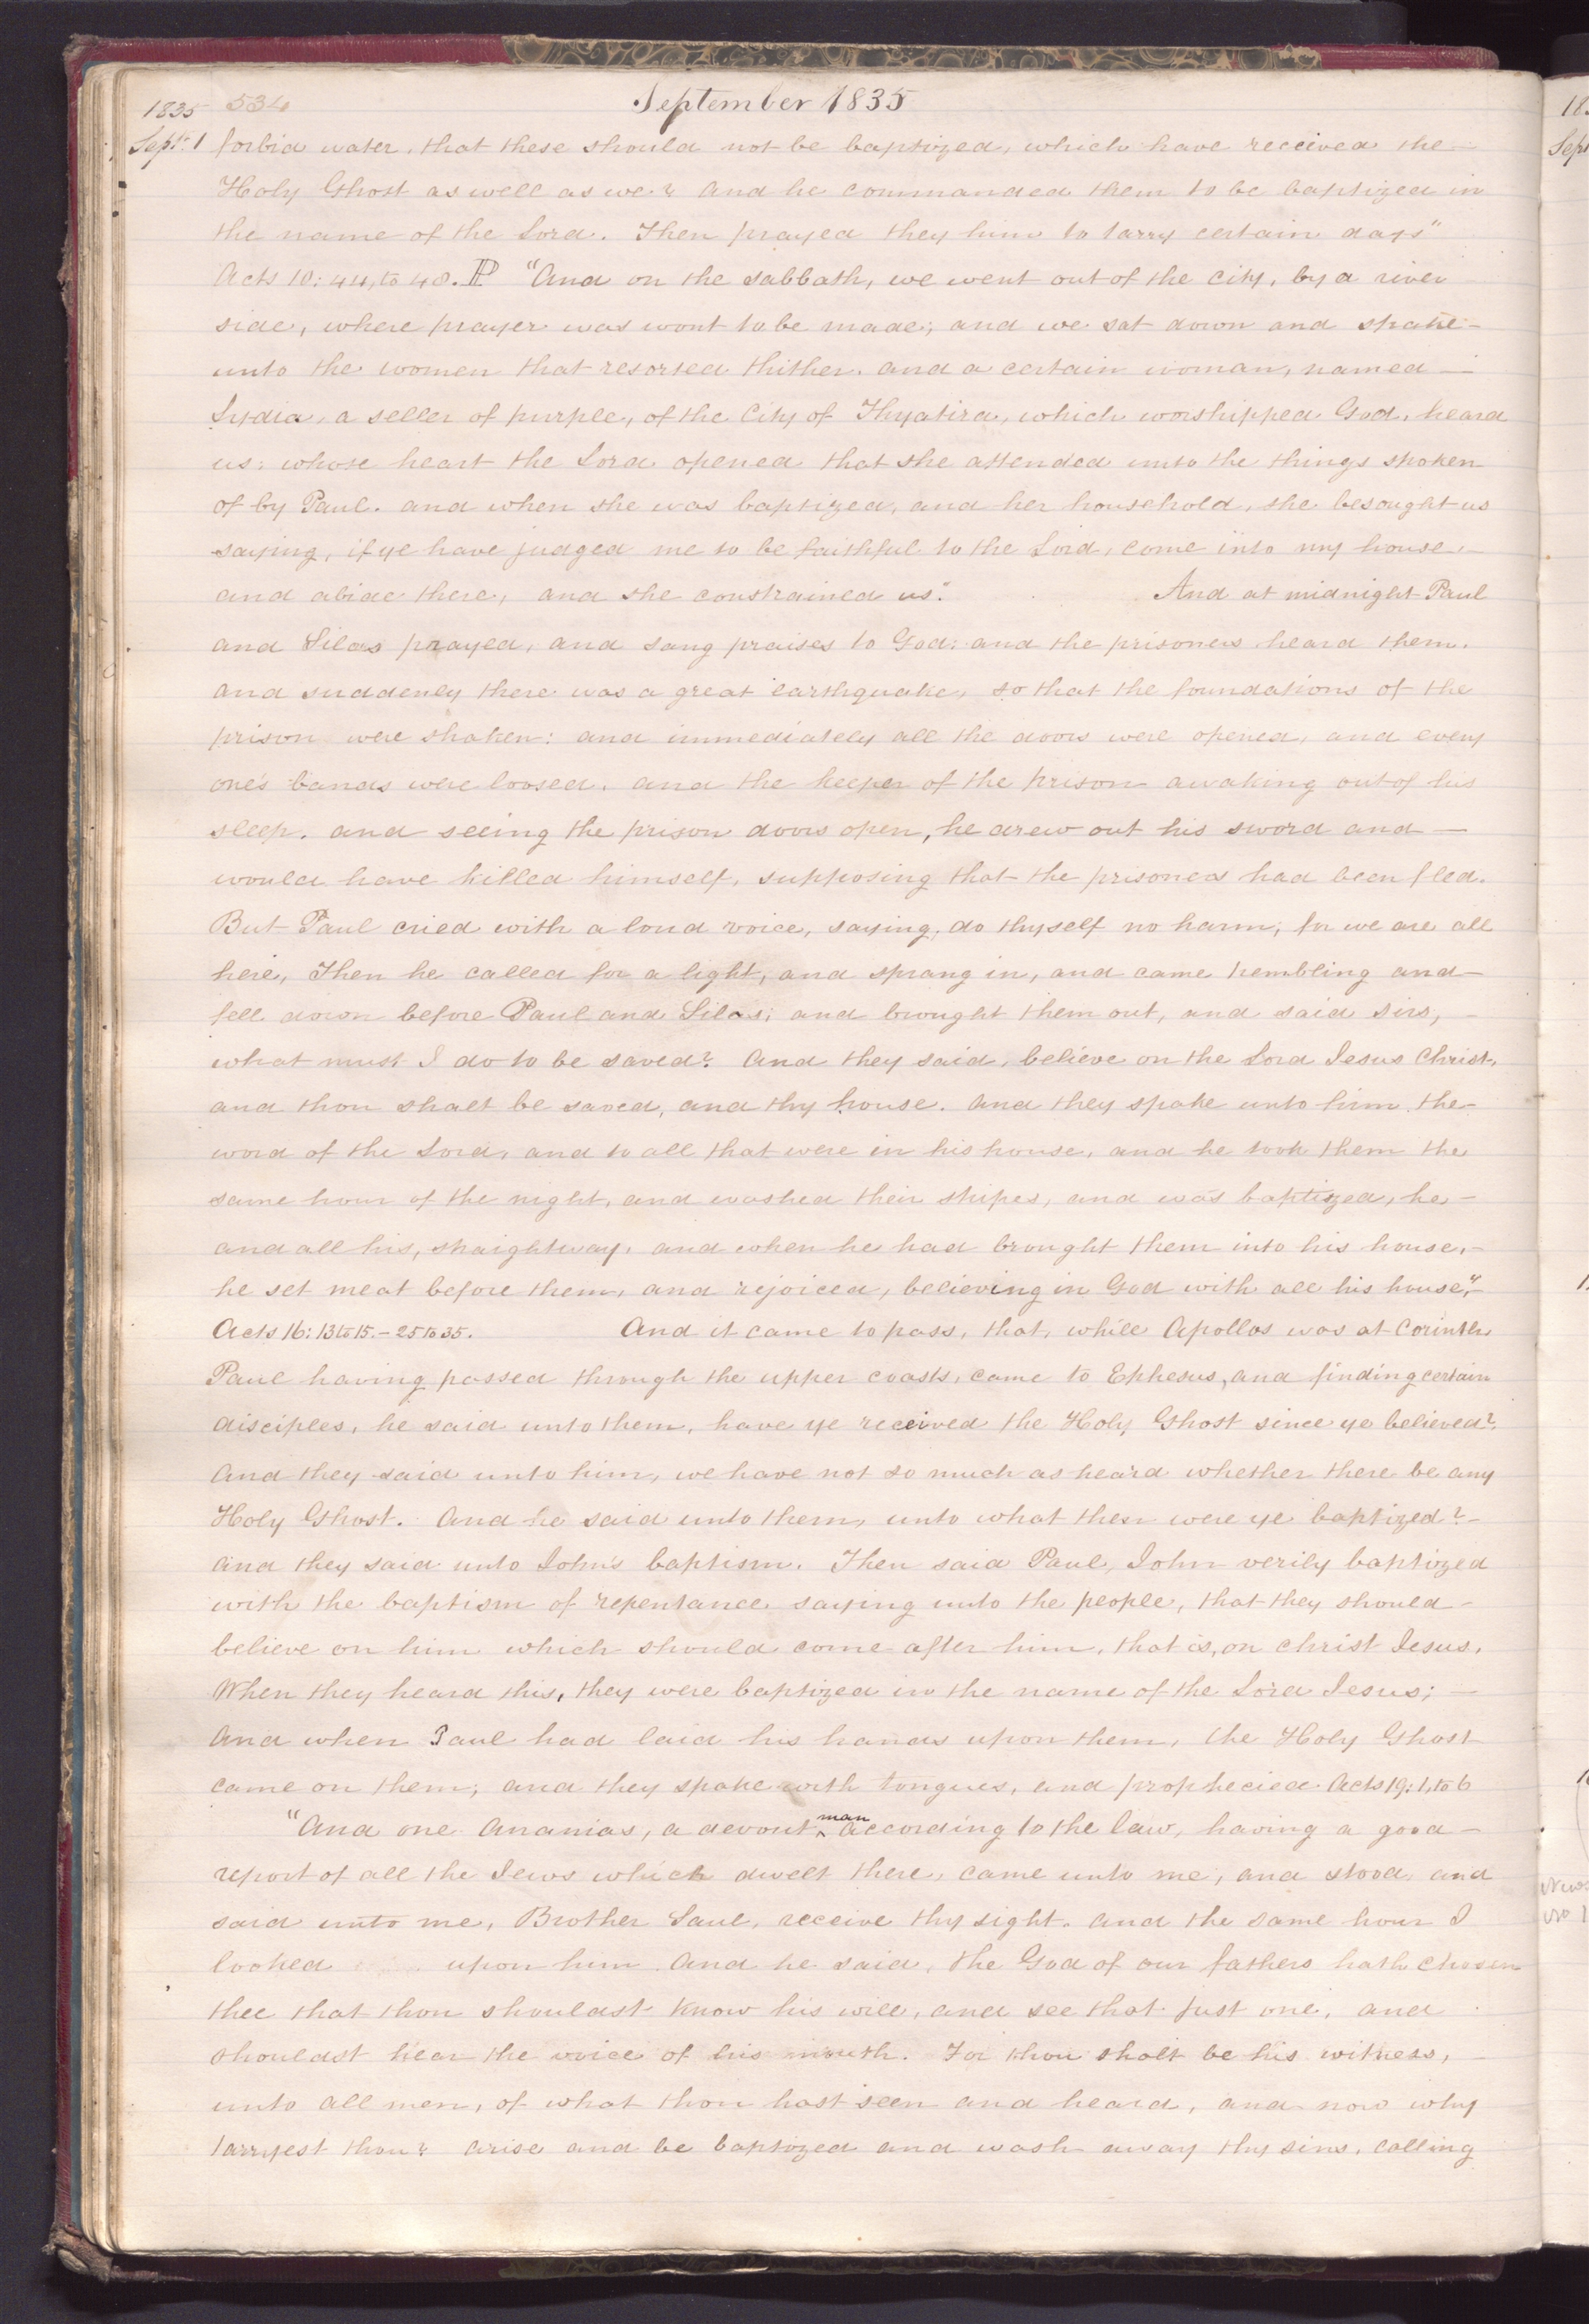 1835 534 September 1835
Sept. 1 forbid water, that these should not be baptized, which have received the
Holy Ghost as well as we? And he commanded them to be baptized in
the name of the Lord. Then prayed they him to tarry certain days"
Acts 10: 44, to 48. IP "And on the sabbath, we went out of the city, by a river
side, where prayer was wont to be made; and we sat down and spake—
unto the women that resorted thither. and a certain woman, named—
Lydia, a seller of purple, of the City of Thyatira, which worshipped God, heard
us: whose heart the Lord opened that she attended unto the things spoken
of by Paul. and when she was baptized, and her household, she besought us
saying, if ye have judged me to be faithful to the Lord, come into my house,—
and abide there, and she constrained us." And at midnight Paul
and Silas prayed, and sang praises to God: and the prisoners heard them.
and suddenly there was a great earthquake, so that the foundations of the
prison were shaken: and immediately all the doors were opened, and every
one's bands were loosed. and the keeper of the prison awaking out of his
sleep. and seeing the prison doors open, he drew out his sword and—
would have killed himself, supposing that the prisoners had been fled.
But Paul cried with a loud voice, saying, do thyself no harm; for we are all
here, Then he called for a light, and sprang in, and came trembling and—
fell down before Paul and Silas; and brought them out, and said sirs,—
what must I do to be saved? And they said, believe on the Lord Jesus Christ,
and thou shalt be saved, and thy house. And they spake unto him the—
word of the Lord, and to all that were in his house, and he took them the
same hour of the night, and washed their stripes, and was baptized, he—
and all his, straightway. and when he had brought them into his house,—
he set meat before them, and rejoiced, believing in God with all his house,"—
Acts 16: 13 to 15.—25 to 35. And it came to pass, that, while Apollos was at Corinth
Paul having passed through the upper coasts, came to Ephesus, and finding certain
disciples, he said unto them, have ye received the Holy Ghost since ye believed?
And they said unto him, we have not so much as heard whether there be any
Holy Ghost. And he said unto them, unto what then were ye baptized?—
And they said unto John's baptism. Then said Paul, John verily baptized
with the baptism of repentance saying unto the people, that they should—
believe on him which should come after him, that is, on Christ Jesus.
When they heard this, they were baptized in the name of the Lord Jesus;—
And when Paul had laid his hands upon them, the Holy Ghost
came on them; and they spake with tongues, and prophecied. Acts 19: 1, to 6
"And one Ananias, a devout ^man according to the law, having a good—
report of all the Jews which dwelt there, came unto me, and stood, and
said unto me, Brother Saul, receive thy sight. And the same hour I
looked upon him And he said, the God of our fathers hath chosen
thee that thou shouldst know his will, and see that Just one, and
shouldst hear the voice of his mouth. For thou shalt be his witness,—
unto all men, of what thou hast seen and heard, and now why
tarryest thou? arise and be baptized and wash away thy sins, calling